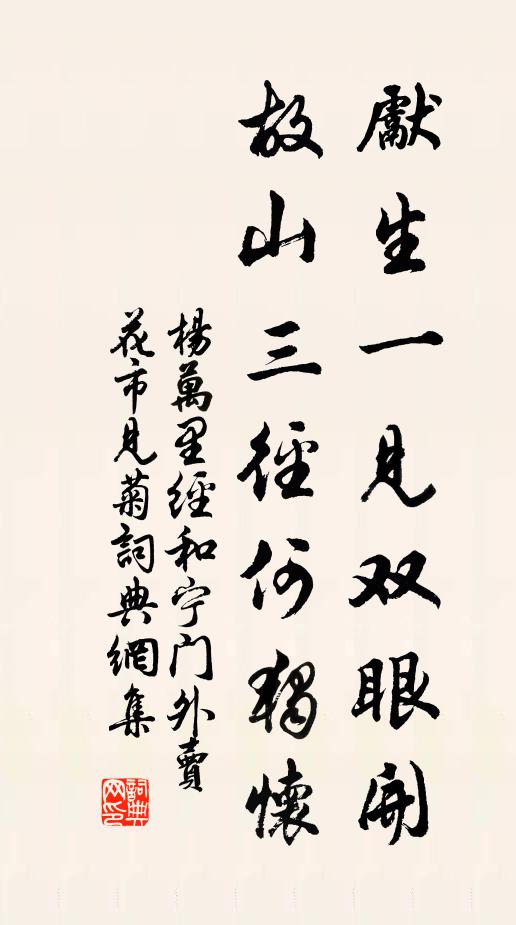 獻生一見双眼開
故山三徑何獨懷
楊萬里經和宁门外賣
花市見菊詞典網集
詞典
网印